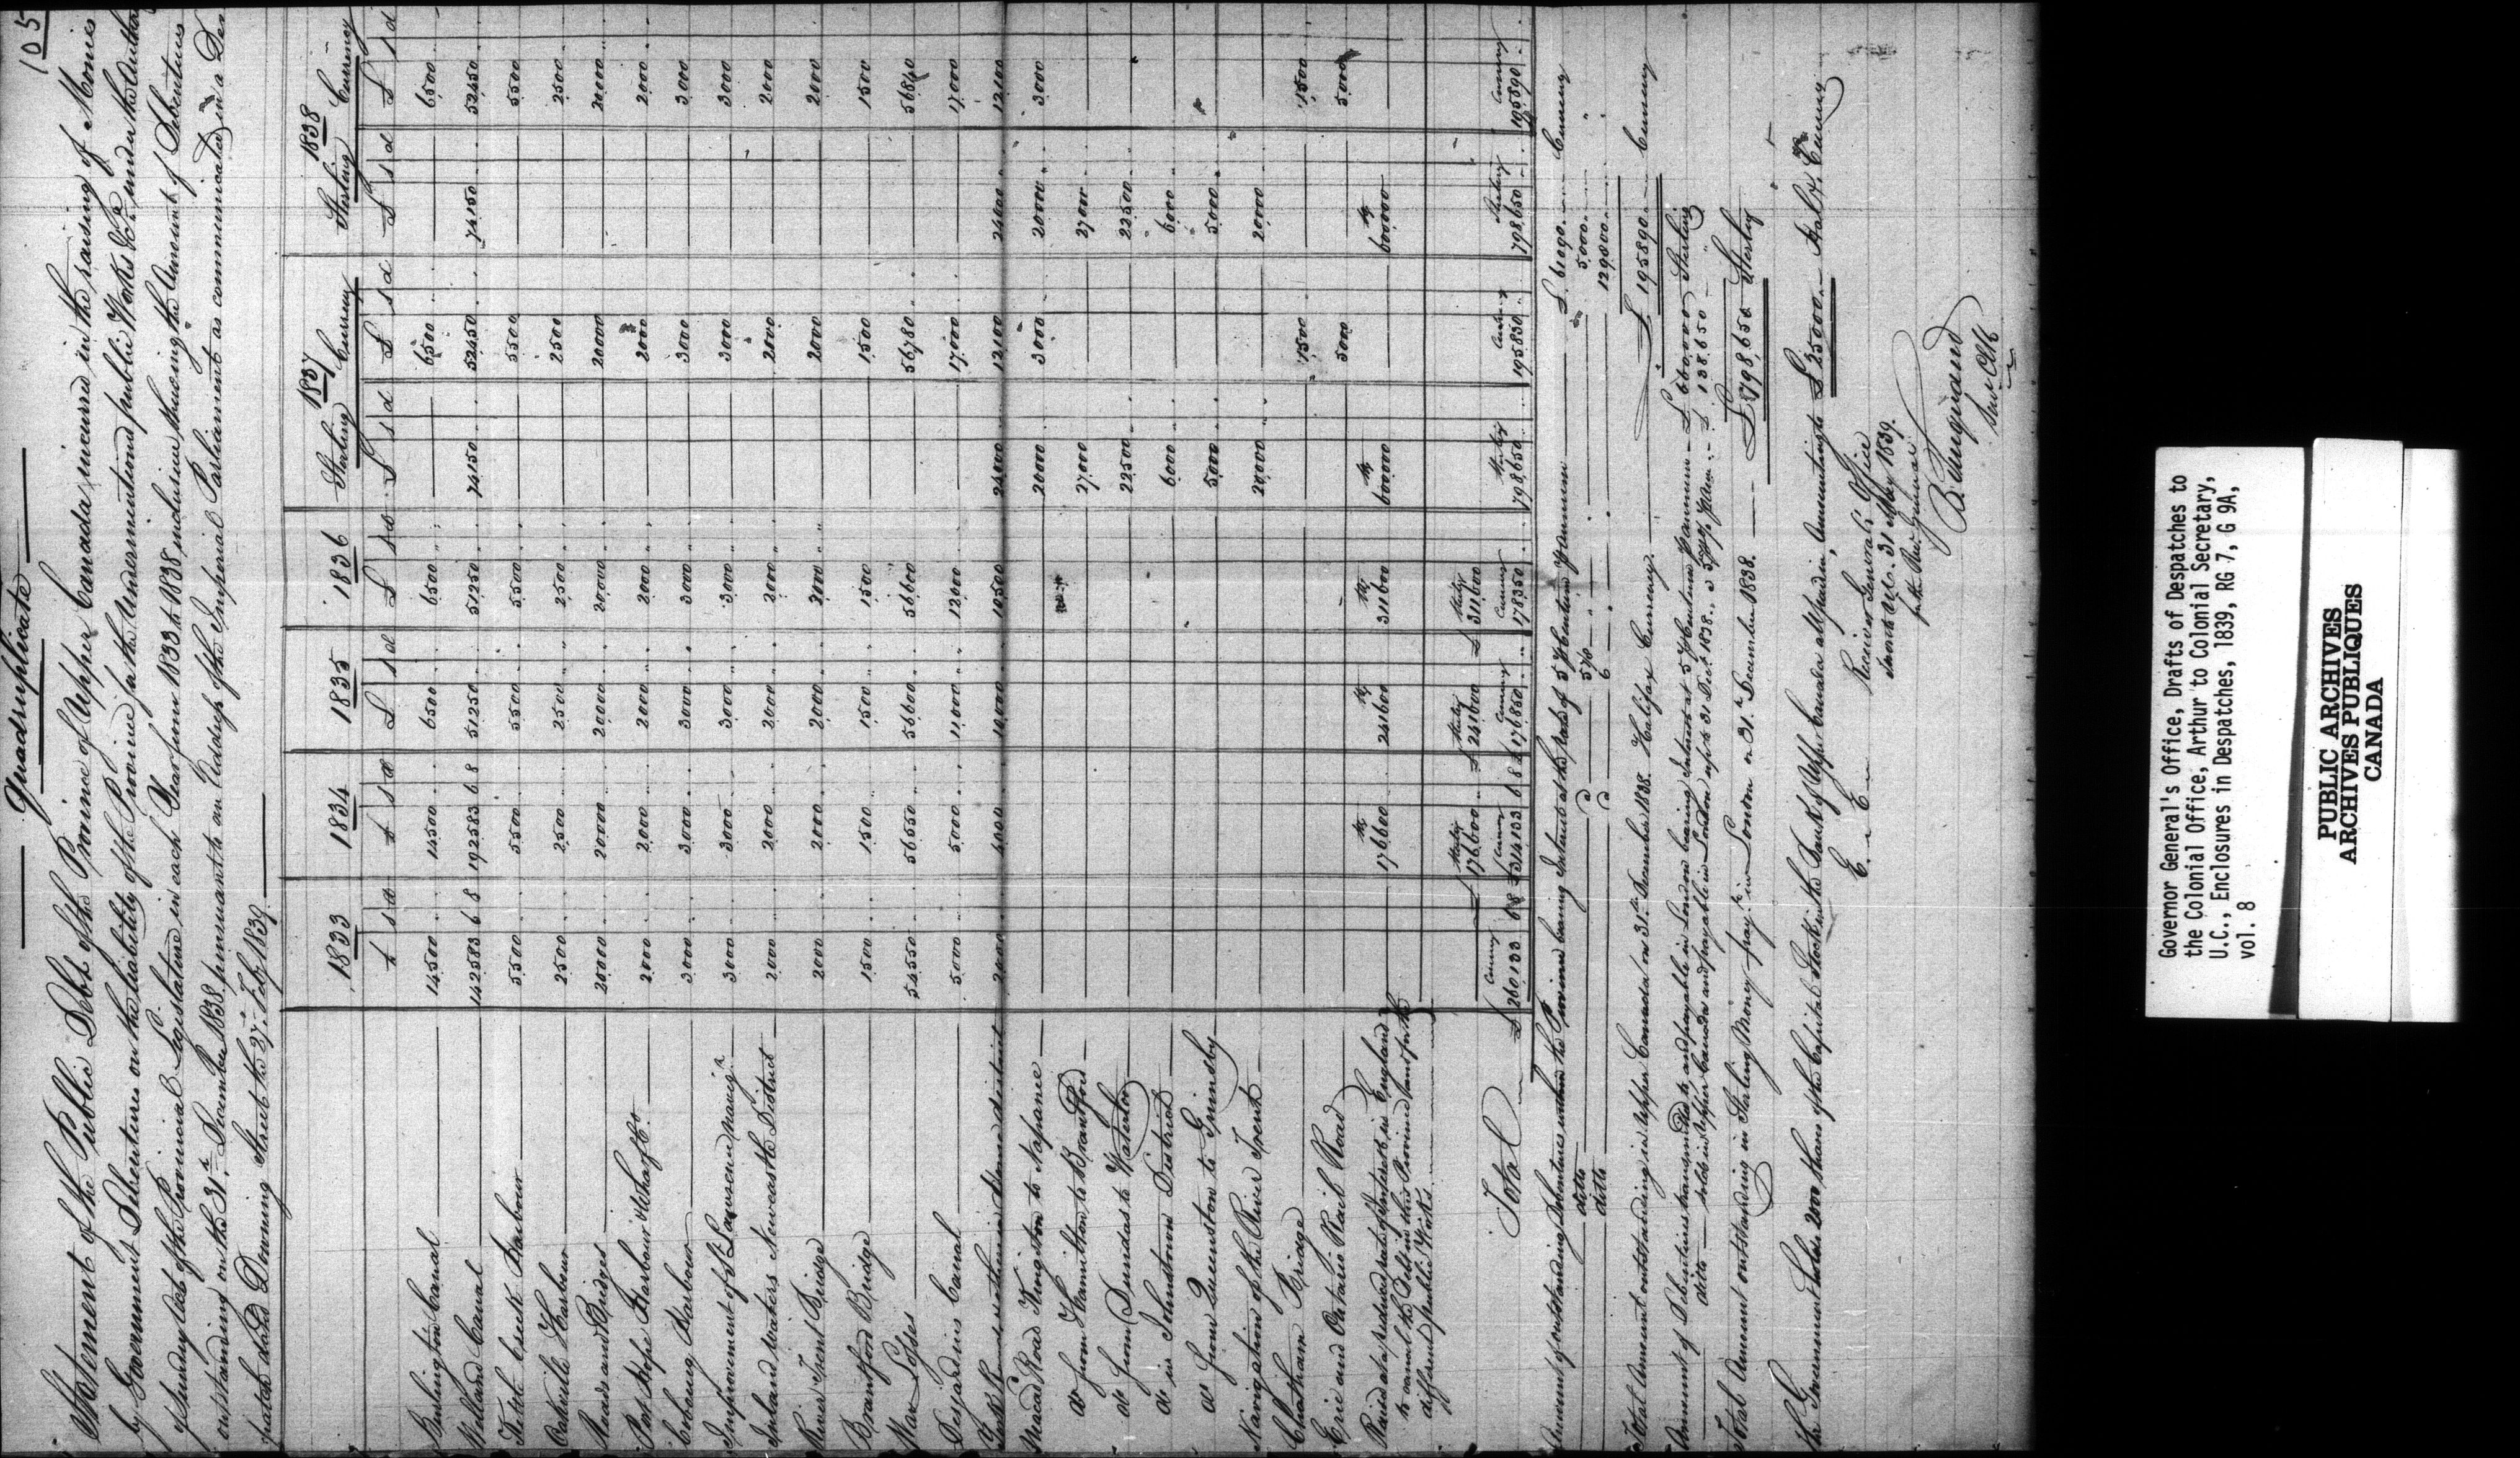 105
Quadruplicate
Statement of the Public Debt of the Province of Upper Canada, incurred in the raising of Monies
by Government Debentures on the liability of the Province for the Undermentioned public Works &c. under the Authority
of Sundry Acts of the Provincial Legislature in each Year from 1833 to 1838 inclusive shewing the Amount of Debentures
outstanding on the 31st December 1838, pursuant to an Address of the Imperial Parliament as communicated in a Des
patch dated Downing Street the 27th Feby 1839.
1833 1834 1835 1836 1837 1838
Sterling Currency Sterling Currency
£ s d £ s d £ s d £ s d £ s d £ s d £ s d £ s d
Burlington Canal 14500 14500 6500 6500 6500 6500
Welland Canal 142583 6 8 192583 6 8 51250 51250 74150 52450 74150 52450
Kettle Creek Harbour 5500 5500 5500 5500 5500 5500
Oakville Harbour 2500 2500 2500 2500 2500 2500
Roads and Bridges 20000 20000 20000 20000 20000 20000
Port Hope Harbour & Wharf Co. 2000 2000 2000 2000 2000 2000
Cobourg Harbour 3000 3000 3000 3000 3000 3000
Improvement of St Lawrence Navign 3000 3000 3000 3000 3000 3000
Inland Waters Newcastle District 2000 2000 2000 2000 2000 2000
River Trent Bridge 2000 2000 2000 2000 2000 2000
Brantford Bridge 1500 1500 1500 1500 1500 1500
War Losses 54550 56550 56600 56600 56780 56840
Desjardins Canal 5000 5000 11000 12000 17000 17000
Home district 10000 10500 24000 12100 24000 12100
Macad Road Kingston to Napanee 20000 3000 20000 3000
do from Hamilton to Brantford 27000 27000
do from Dundas to Waterloo 22500 22500
do in Johnstown District 6000 6000
do from Queenston to Grimsby 5000 5000
Navigation of the River Trent 20000 20000
Chatham Bridge 1500 1500
Erie and Ontario Rail Road 5000 5000
Raised at a reduced rate of interest in England
to cancel the Debt in this Province and for the
different public Works
Stg 176600 Stg 241600 Stg 311600 Stg 600000 Stg 600000
Sterling £176600 Sterling £241600 Sterling £311600
Currency Currency Currency Currency Sterling Currency Sterling Currency
Total £260133 6 8 £314133 6 8 £176850 178350 798650 195830 798650 195890
Amount of outstanding Debentures within the Province bearing Interest at the Rate of 5 ⅌ Centum ⅌ Annum £61090 Currency
ditto 5000
ditto 6 129800
Total Amount outstanding in Upper Canada on 31st December 1838. Halifax Currency £195890 Currency
Amount of Debentures transmitted to, and payable in London bearing Interest at 5 ⅌ Centum ⅌ Annum £660,000 Sterling
ditto sold in Upper Canada and payable in London up to 31 Decr 1838 138650
Total Amount outstanding in Sterling Money payle in London on 31st December 1838. £798,650 Sterling
The Government holds 2000 shares of the Capital Stock in the Bank of Upper Canada all paid in, Amounting to £25000 Halifx Curcy
E. E.
Receiver General's Office
Toronto U.C. 31 May 1839.
for the Recr General
B. Turquand
Senr Clk
Governor General's Office, Drafts of Despatches to
the Colonial Office, Arthur to Colonial Secretary,
U.C., Enclosures in Despatches, 1839, RG 7, G 9A,
vol. 8
PUBLIC ARCHIVES
ARCHIVES PUBLIQUES
CANADA